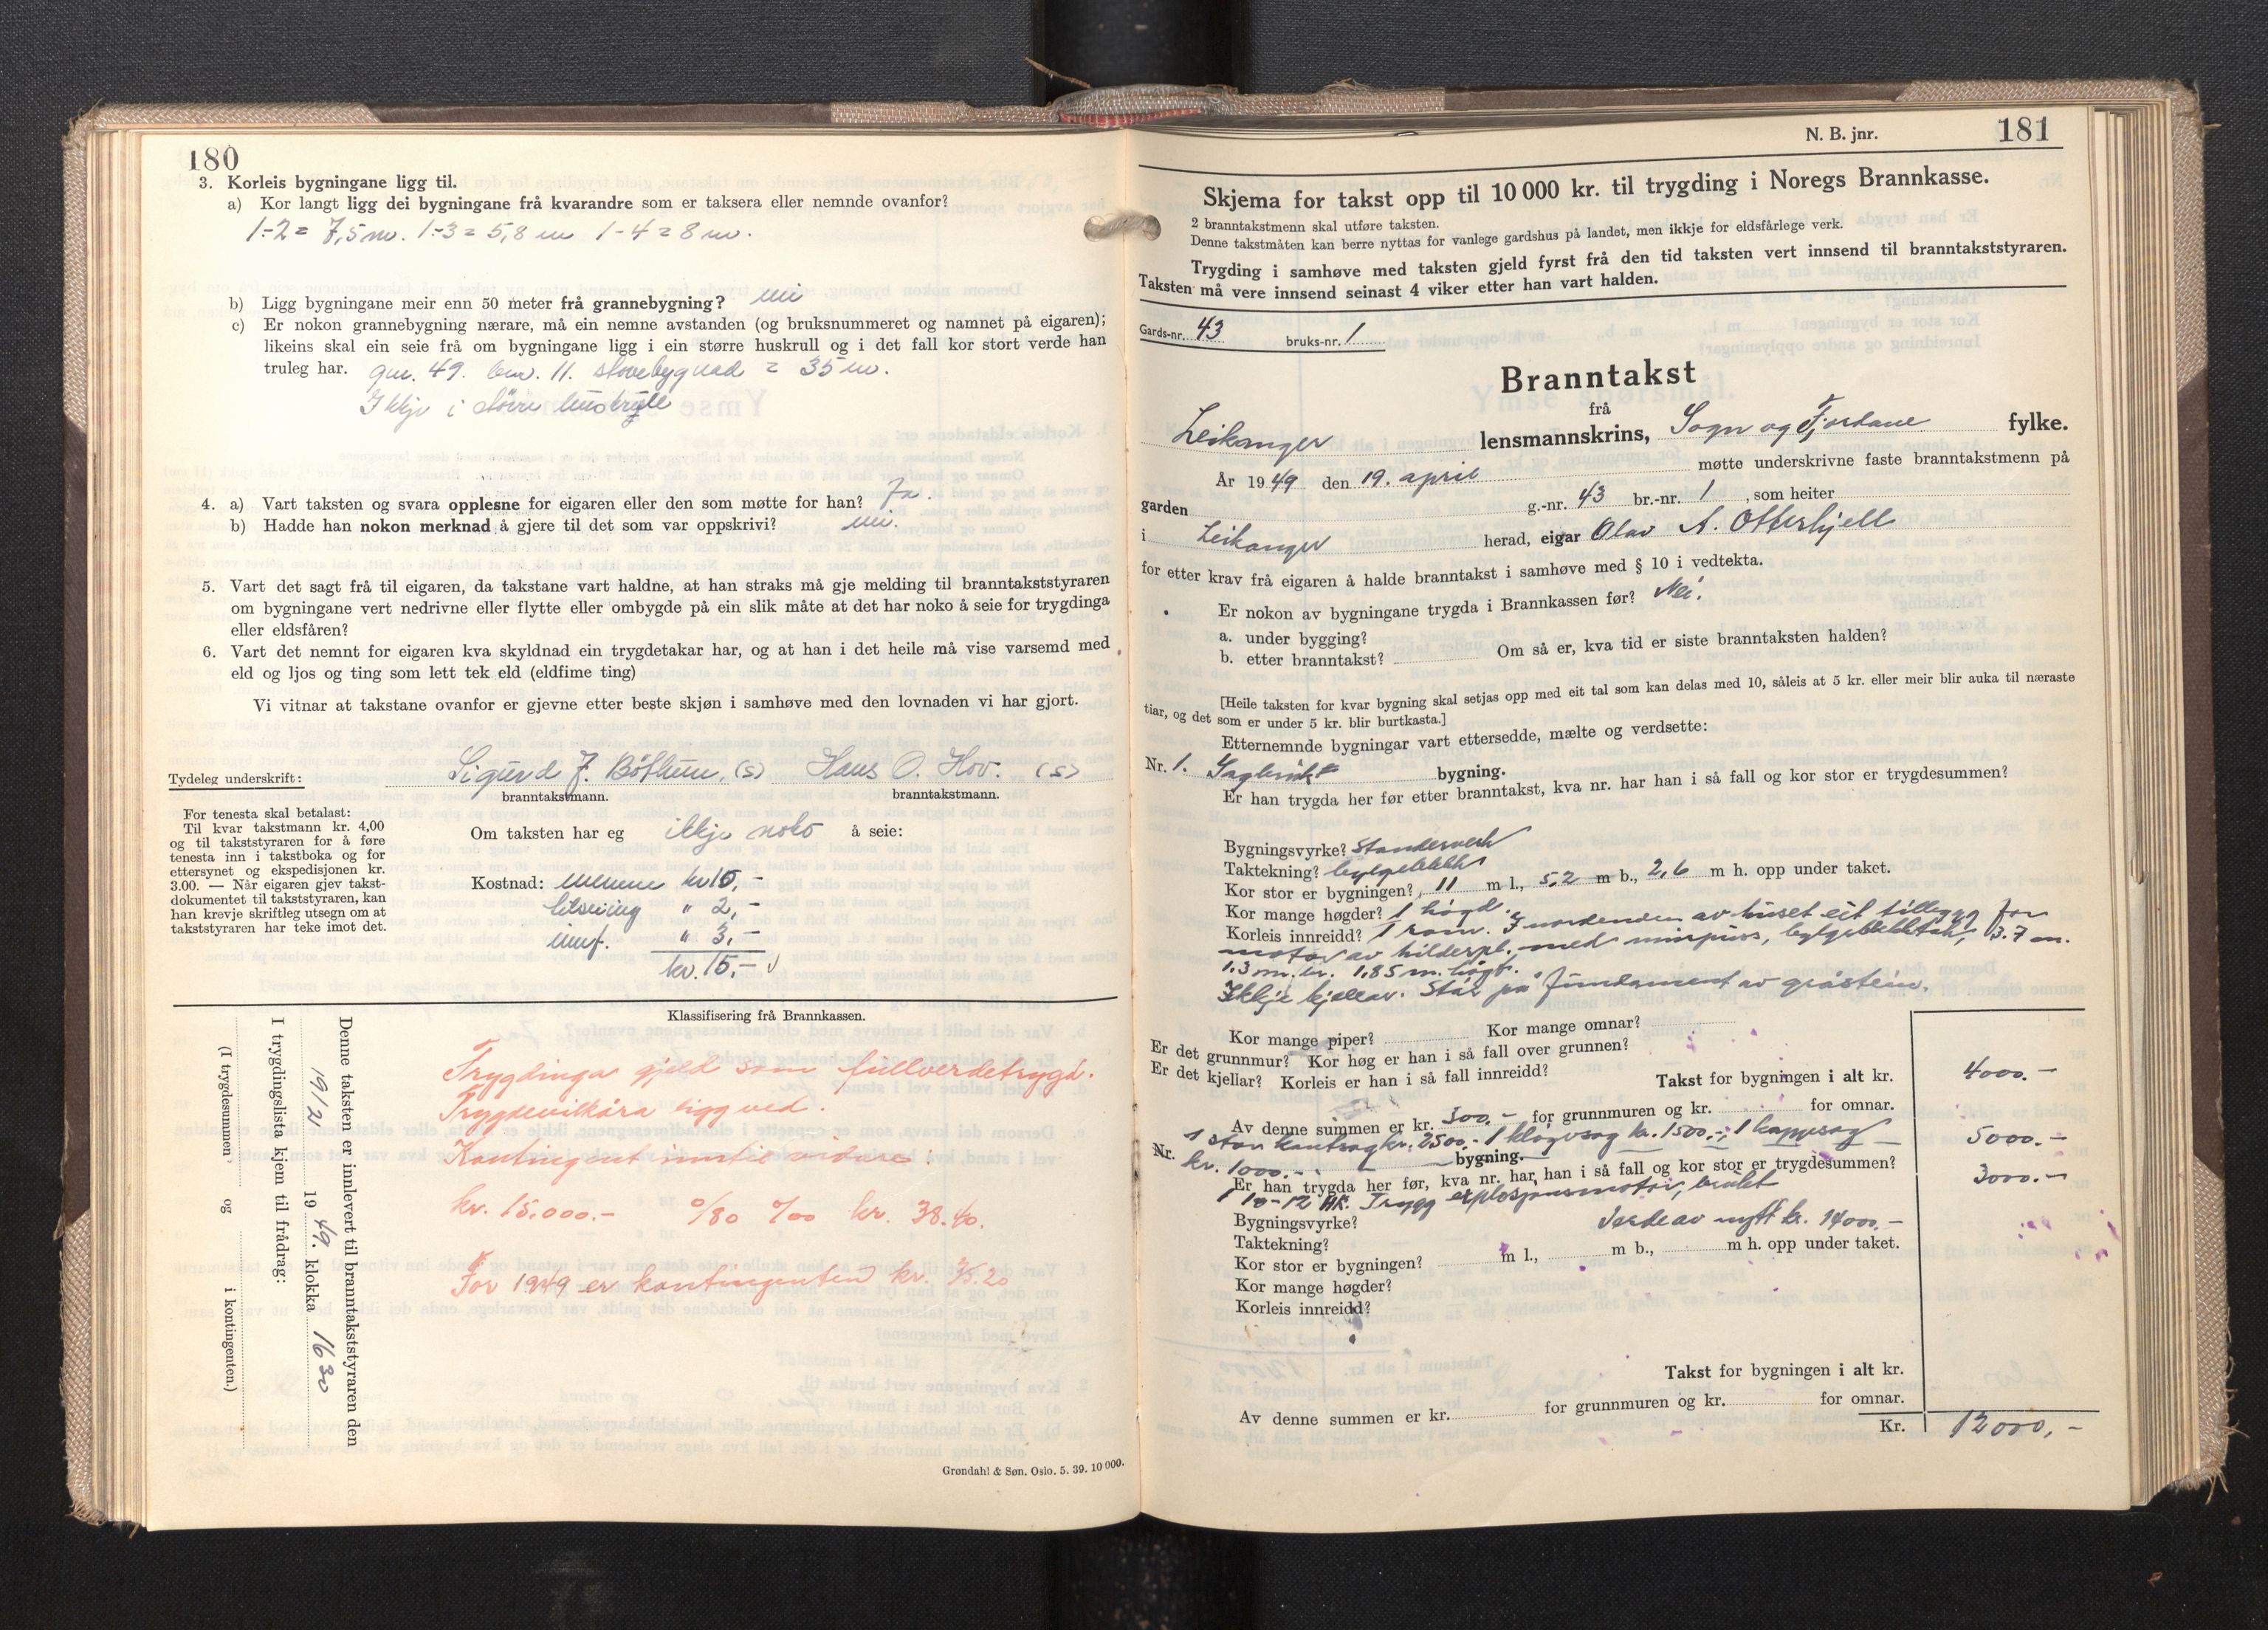 180
3. Korleis bygningane ligg til.
a) Kor langt ligg dei bygningane frå kvarandre som er taksera eller nemnde ovanfor?
1-2 = 7,5 m. 1-3 = 5,8 m 1-4 = 8 m.
b) Ligg bygningane meir enn 50 meter frå grannebygning? nei
c) Er nokon grannebygning nærare, må ein nemne avstanden (og bruksnummeret og namnet på eigaren);
likeins skal ein seie frå om bygningane ligg i ein større huskrull og i det fall kor stort verde han
truleg har. gnr. 49. bnr. 11. stovebygnad = 35 m.
Ikkje i större huskrull
4. a) Vart taksten og svara opplesne for eigaren eller den som møtte for han? Ja.
b) Hadde han nokon merknad å gjere til det som var oppskrivi? nei.
5. Vart det sagt frå til eigaren, da takstane vart haldne, at han straks må gje melding til branntakststyraren
om bygningane vert nedrivne eller flytte eller ombygde på ein slik måte at det har noko å seie for trygdinga
eller eldsfåren?
6. Vart det nemnt for eigaren kva skyldnad ein trygdetakar har, og at han i det heile må vise varsemd med
eld og ljos og ting som lett tek eld (eldfime ting)
Vi vitnar at takstane ovanfor er gjevne etter beste skjøn i samhøve med den lovnaden vi har gjort.
Tydeleg underskrift: Sigurd J. Böthun. (s) Hans O. Hov. (s)
branntakstmann. branntakstmann.
For tenesta skal betalast:
Til kvar takstmann kr. 4,00
og til takststyraren for å føre
tenesta inn i takstboka og for
ettersynet og ekspedisjonen kr.
3.00. — Når eigaren gjev takst-
dokumentet til takststyraren, kan
han krevje skriftleg utsegn om at
takststyraren har teke imot det.
Om taksten har eg ikkje noko å seie:
Kostnad: mennene kr 10,-
" 2,-
innf. " 3,-
kr. 15,-
Klassifisering frå Brannkassen.
Trygdinga gjeld som fullverdetrygd.
Trygdevilkåra ligg ved.
Kontingent inntil vidare:
kr. 15.000.- ‰ kr. 38.40.
For 1949 er kontingenten kr. 35.20
Denne taksten er innlevert til branntakststyraren den
19/2 1949. klokka 1630
I trygdingslista kjem til frådrag:
(I trygdesummen og i kontingenten.)
Grøndahl & Søn. Oslo. 5. 39. 10 000.
N. B. jnr. 181
Skjema for takst opp til 10 000 kr. til trygding i Noregs Brannkasse.
2 branntakstmenn skal utføre taksten.
Denne takstmåten kan berre nyttas for vanlege gardshus på landet, men ikkje for eldsfårlege verk.
Trygding i samhøve med taksten gjeld fyrst frå den tid taksten vert innsend til branntakststyraren.
Taksten må vere innsend seinast 4 viker etter han vart halden.
Gards-nr. 43 bruks-nr. 1
Branntakst
frå
Leikanger lensmannskrins, Sogn og Fjordane fylke.
År 1949 den 19. april møtte underskrivne faste branntakstmenn på
garden g.-nr. 43 br.-nr. 1, som heiter
i Leikanger herad, eigar Olav A. Otterhjell
for etter krav frå eigaren å halde branntakst i samhøve med § 10 i vedtekta.
Er nokon av bygningane trygda i Brannkassen før? Nei.
a. under bygging?
b. etter branntakst? Om så er, kva tid er siste branntaksten halden?
[Heile taksten for kvar bygning skal setjas opp med eit tal som kan delas med 10, såleis at 5 kr. eller meir blir auka til næraste
tiar, og det som er under 5 kr. blir burtkasta.]
Etternemnde bygningar vart ettersedde, mælte og verdsette:
Nr. 1. Sagbruks bygning.
Er han trygda her før etter branntakst, kva nr. har han i så fall og kor stor er trygdesummen?
Bygningsvyrke? Standerverk
Taktekning? bylgeblekk
Kor stor er bygningen? 11 m l., 5,2 m b., 2,6 m h. opp under taket.
Kor mange høgder? 1 högd.
Korleis innreidd? 1 rom. I nordenden av huset eit tillegg for
motor av med murpuss, bylgeblekktak, 3.7 m.
1.3 m. br. 1,85 m. högt.
Ikkje kjellar. Står på fundament av gråstein.
Kor mange piper? Kor mange omnar?
Er det grunnmur? Kor høg er han i så fall over grunnen?
Er det kjellar? Korleis er han i så fall innreidd?
Takst for bygningen i alt kr. 4000.-
Av denne summen er kr. 300.- for grunnmuren og kr. for omnar.
1 stor kantsag kr. 2500.- 1 klögvsag kr. 1500.-, 1 kappsag 5000.-
Nr. kr. 1000.- bygning.
Er han trygda her før, kva nr. har han i så fall og kor stor er trygdesummen? 3000.-
1 10-12 HK. Trygg explosjonsmotor, brukt
Bygningsvyrke? Verde av nytt kr. 14000.-
Taktekning?
Kor stor er bygningen? m l., m b., m h. opp under taket.
Kor mange høgder?
Korleis innreidd?
Takst for bygningen i alt kr.
Av denne summen er kr. for grunnmuren og kr. for omnar.
Kr. 12000,-